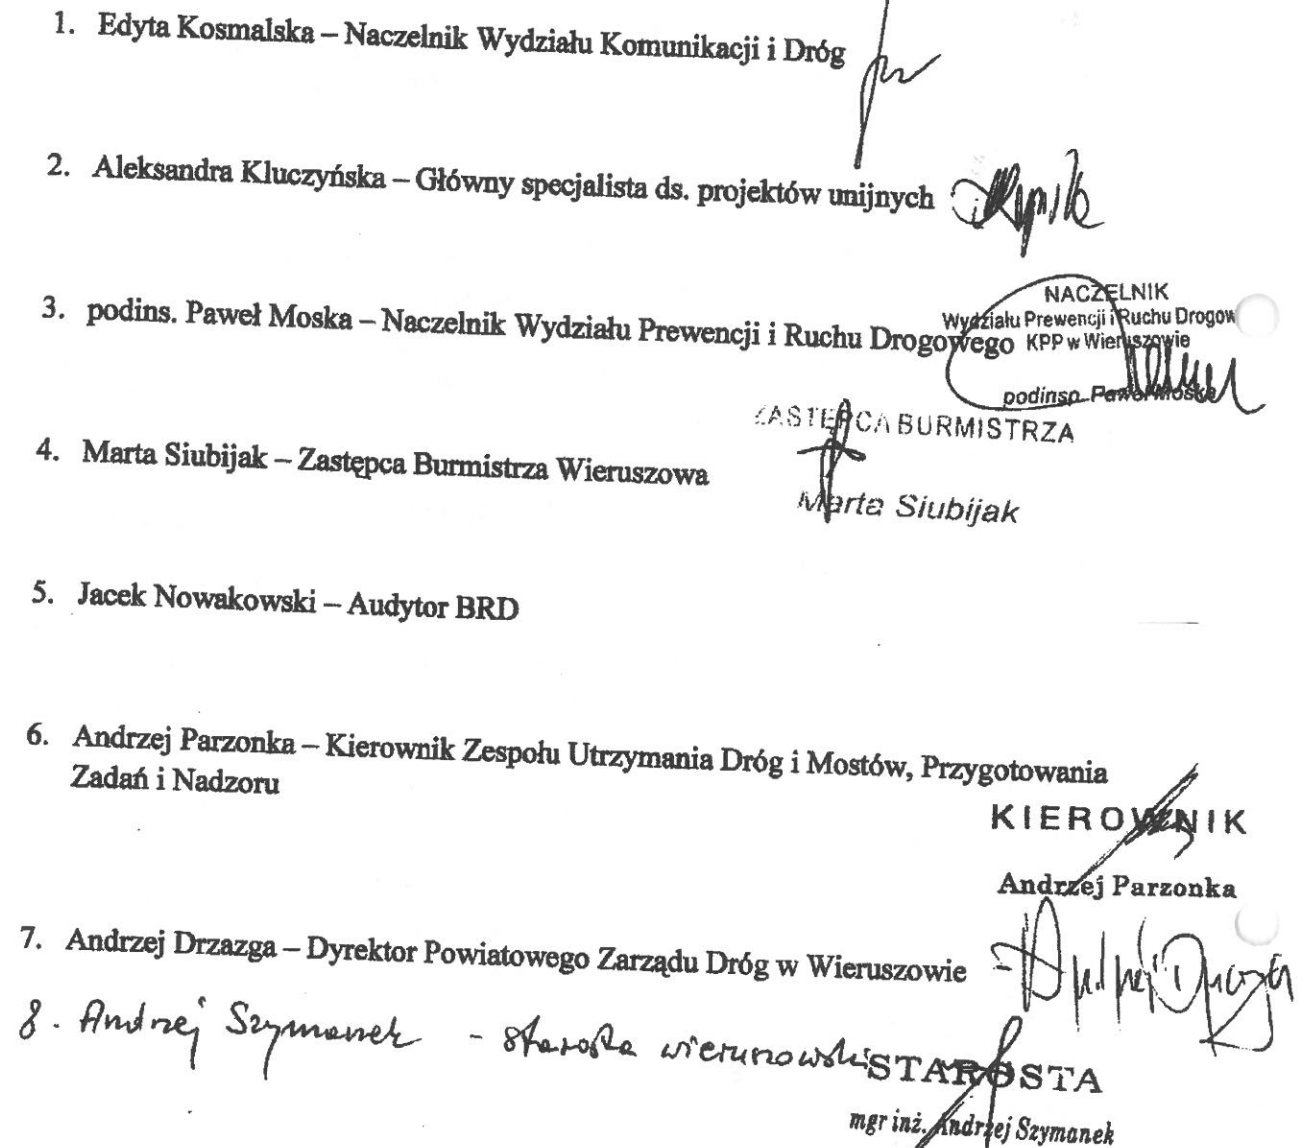 1. Edyta Kosmalska – Naczelnik Wydziału Komunikacji i Dróg
2. Aleksandra Kluczyńska – Główny specjalista ds. projektów unijnych
NACZELNIK
Wydziału Prewencji i Ruchu Drogow
3. podins. Paweł Moska – Naczelnik Wydziału Prewencji i Ruchu Drogowego
KPP w Wieruszowie
podinsp. Paweł Moska
ZASTĘPCA BURMISTRZA
4. Marta Siubijak – Zastępca Burmistrza Wieruszowa
Marta Siubijak
5. Jacek Nowakowski – Audytor BRD
6. Andrzej Parzonka – Kierownik Zespołu Utrzymania Dróg i Mostów, Przygotowania
Zadań i Nadzoru
KIEROWNIK
Andrzej Parzonka
7. Andrzej Drzazga – Dyrektor Powiatowego Zarządu Dróg w Wieruszowie
8. Andrzej Szymanek - starosta wieruszowski
STAROSTA
mgr inż. Andrzej Szymanek